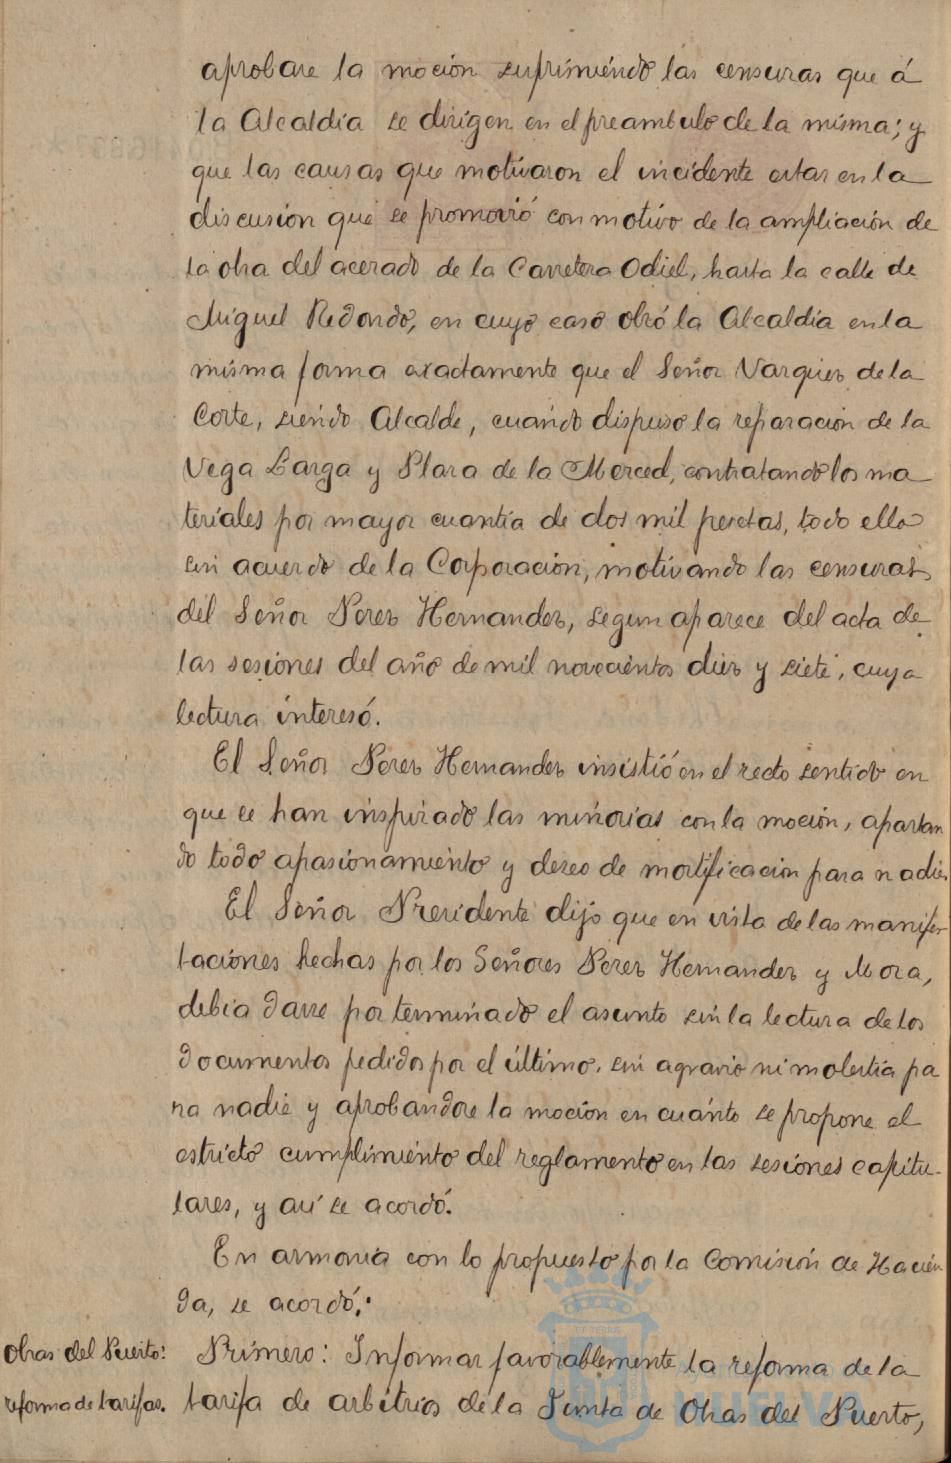 aprobare la moción suprimiendo las censuras que á
la Alcaldía se dirigen en el preambulo de la misma; y
que las causas que motivaron el incidente estas en la
discusión que se promovió con motivo de la ampliación de
la obra del acerado de la Carretera Odiel, hasta la calle de
Miguel Redondo, en cuyo caso obró la Alcaldía en la
misma forma exactamente que el Señor Varquez de la
Corte, siendo Alcalde, cuando dispuso la reparación de la
Vega Larga y Plaza de la Merced, contratando los ma
teriales por mayor cuantía de dos mil pesetas, todo ello
sin acuerdo de la Corporación, motivando las censuras
del Señor Perez Hernandez, segun aparece del acta de
las sesiones del año de mil novecientos diez y siete, cuya
lectura interesó.
El Señor Perez Hernandez insistió en el recto sentido en
que se han inspirado las minorías con la moción, apartan
do todo apasionamiento y deseo de mortificacion para nadie.
El Señor Presidente dijo que en vista de las manifes
taciones hechas por los Señores Perez Hernandez y Mora,
debia darse por terminado el asunto sin la lectura de los
documentos pedidos por el último, sin agravio ni molestia pa
ra nadie y aprobandose la moción en cuanto se propone el
estricto cumplimiento del reglamento en las sesiones capitu-
lares, y así se acordó.
En armonia con lo propuesto por la Comisión de Hacien
da, se acordó:
Obras del Puerto: Primero: Informar favorablemente la reforma de la
reforma de tarifas. tarifa de arbitrios de la Junta de Obras del Puerto,
HUELVA